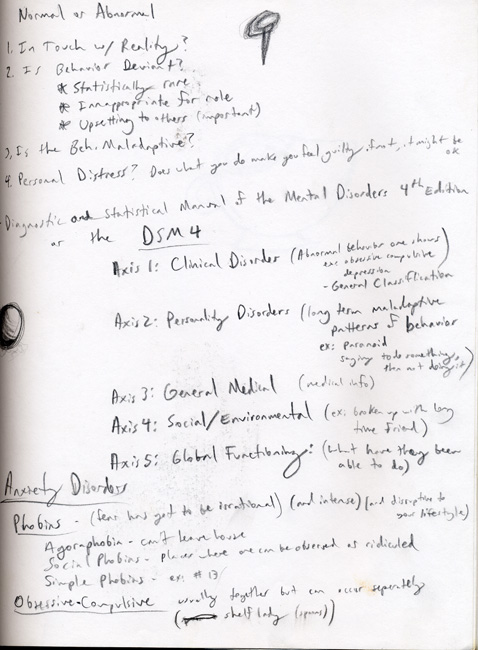 Normal or Abnormal
1. In Touch w/ Reality?
2. Is Behavior Deviant?
* Statistically rare
* Innappropriate for role
* Upsetting to others (important)
3. Is the Beh. Maladaptive?
4. Personal Distress? Does what you do make you feel guilty. if not, it might be ok
Diagnostic and Statistical Manual of the Mental Disorders 4th Edition
or the DSM 4
Axis 1: Clinical Disorder (Abnormal behavior one shows
ex: obsessive compulsive
depression)
- General Classification
Axis 2: Personality Disorders (long term maladaptive
patterns of behavior
ex: Paranoid
saying to do something,
then not doing it)
Axis 3: General Medical (medical info)
Axis 4: Social/Environmental (ex: broken up with long
time friend)
Axis 5: Global Functioning: (what have they been
able to do)
Anxiety Disorders
Phobias - (fear has got to be irrational) (and intense) (and disruptive to
your lifestyle)
Agoraphobia - can't leave house
Social Phobias - Places where one can be observed or ridiculed
Simple Phobias - ex: #13
Obsessive-Compulsive usually together but can occur seperately
(shelf lady (spoons))